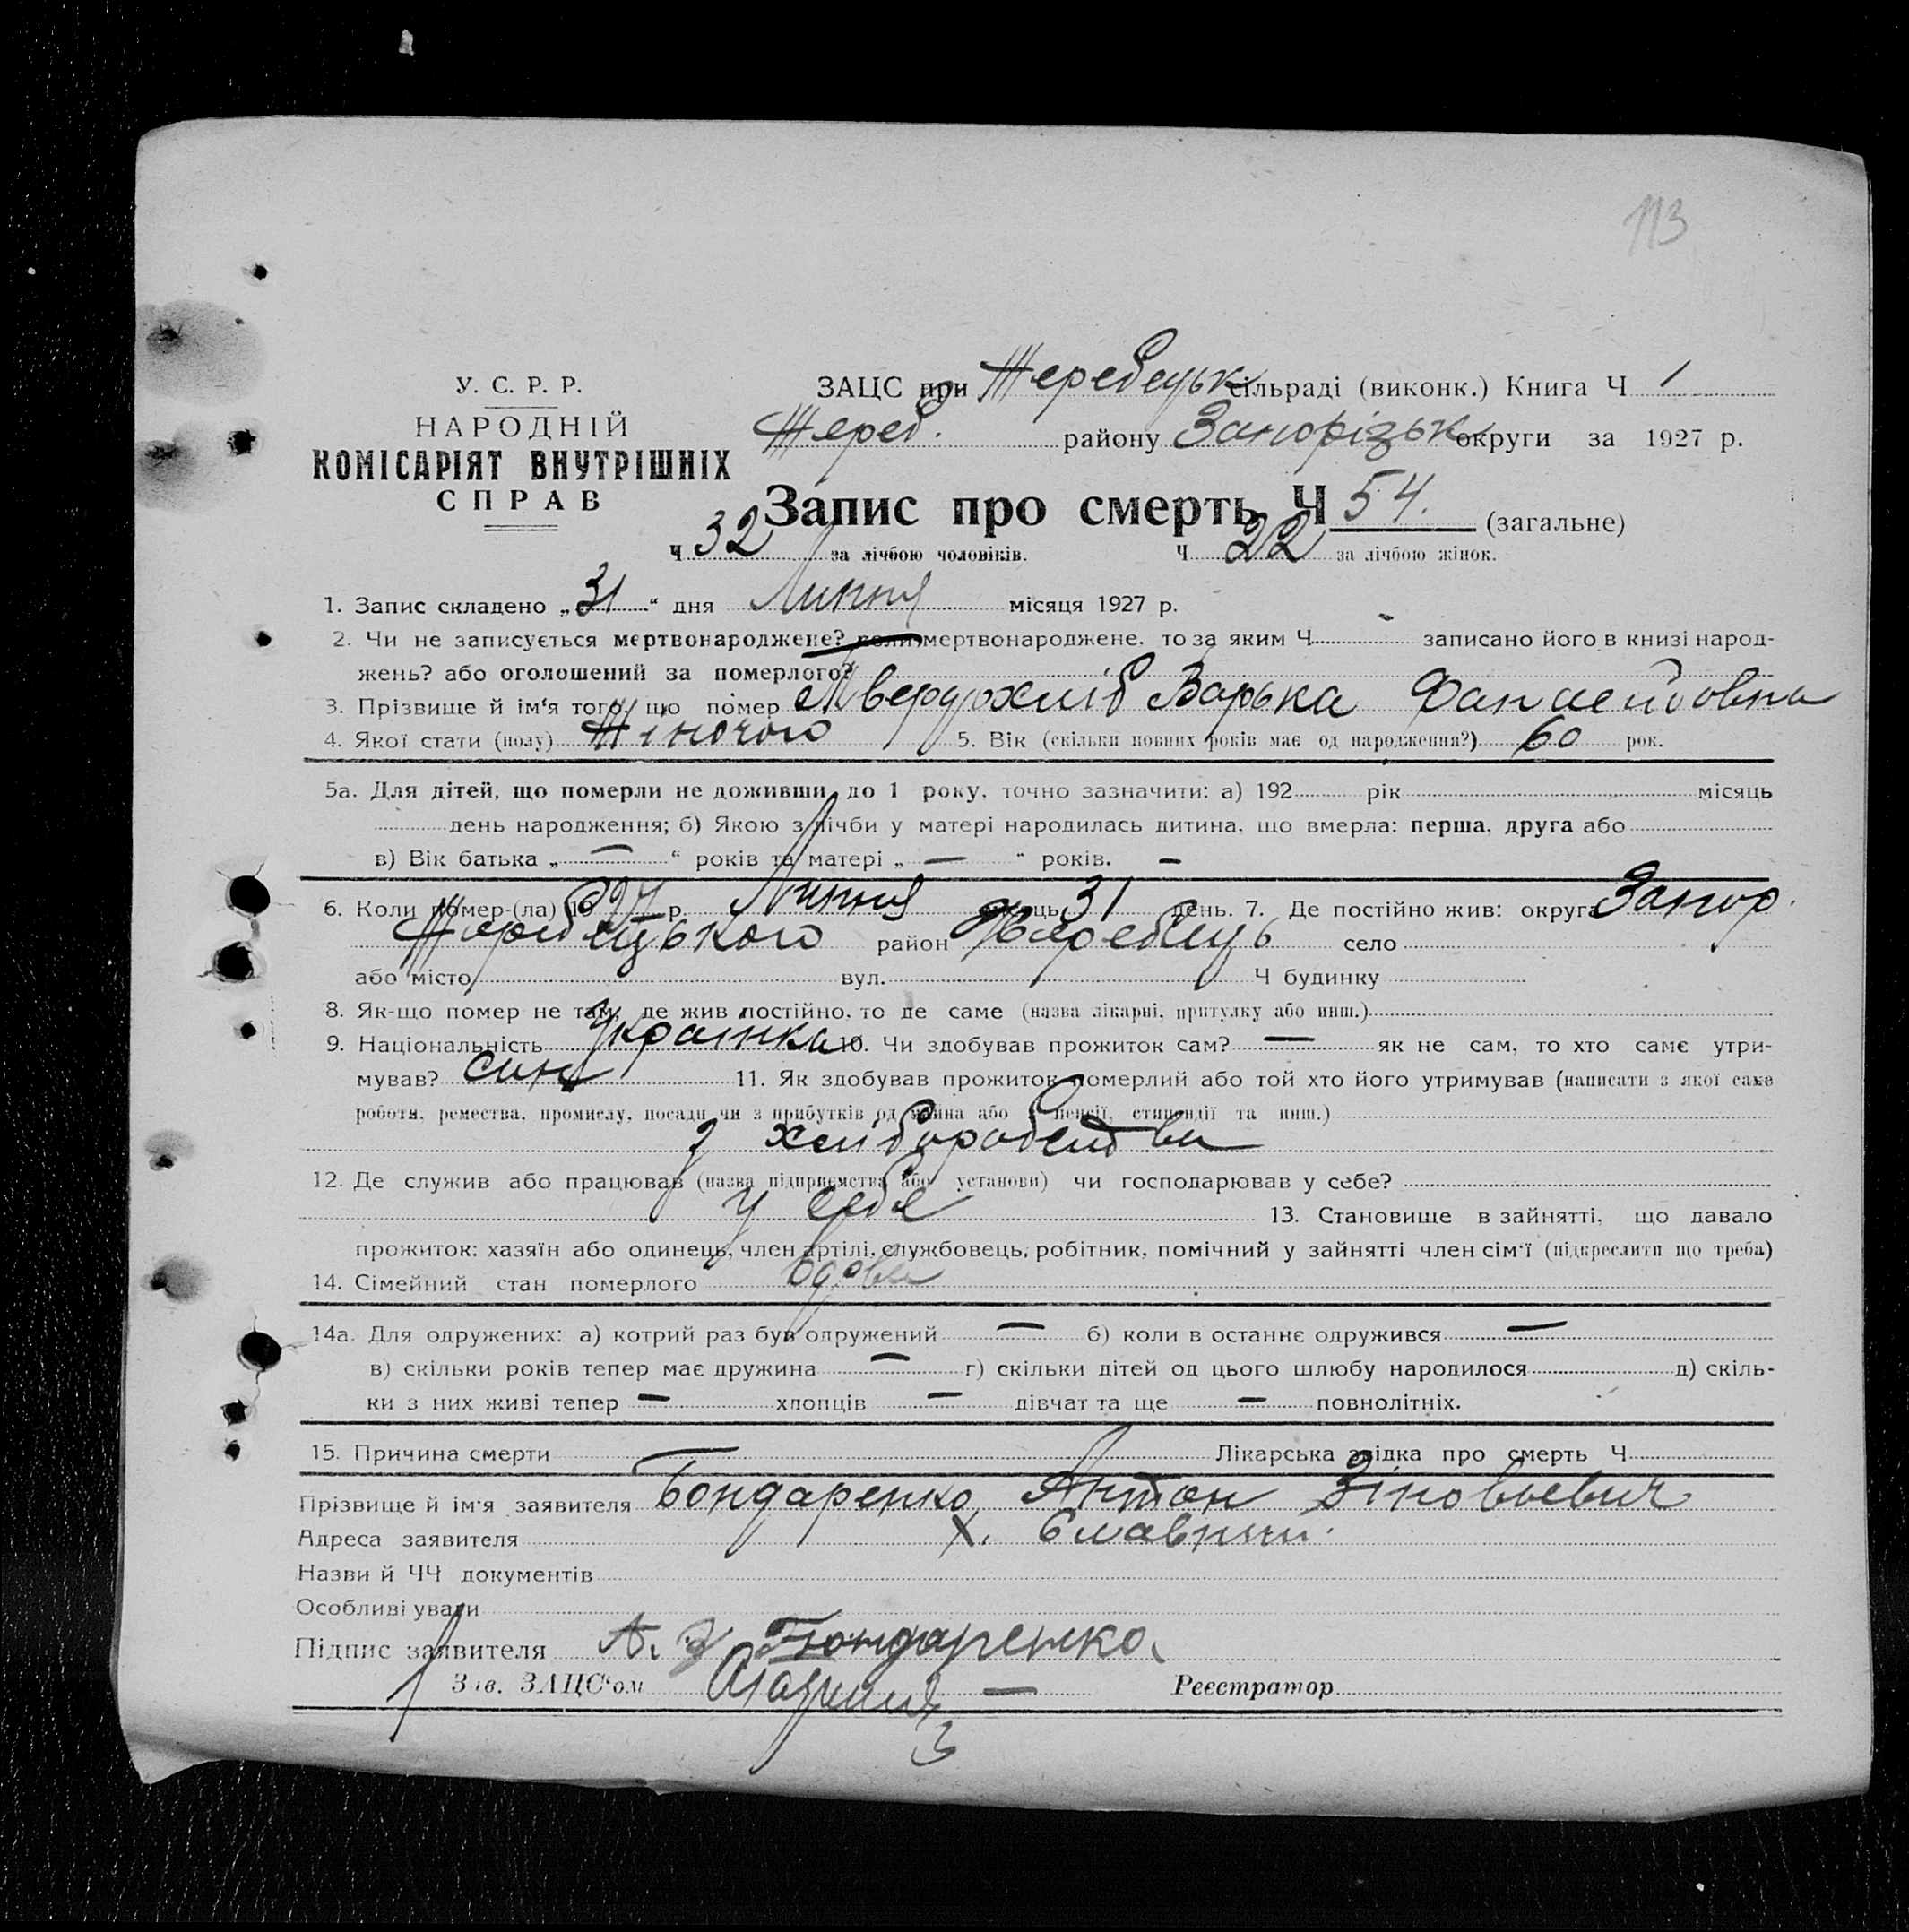 113
У. С. Р. Р.
НАРОДНІЙ
КОМІСАРІЯТ ВНУТРІШНІХ
СПРАВ
ЗАЦС при Жеребецьк сільраді (виконк.) Книга Ч 1
Жереб. району Запорізьк округи за 1927 р.
Запис про смерть Ч 54. (загальне)
Ч 32 за лічбою чоловіків. Ч 22 за лічбою жінок.
1. Запис складено „31“ дня Липня місяця 1927 р.
2. Чи не записується мертвонароджене? коли мертвонароджене, то за яким Ч - записано його в книзі народ-
жень? або оголошений за померлого?
3. Прізвище й ім'я того, що помер Твердохліб Варька
4. Якої стати (полу) Жіночого 5. Вік (скільки повних років має од народження?) 60 рок.
5а. Для дітей, що померли не доживши до 1 року, точно зазначити: а) 192 рік місяць
день народження; б) Якою з лічби у матері народилась дитина, що вмерла: перша, друга або
в) Вік батька „ — “ років та матері „ — “ років. —
6. Коли помер-(ла) 1927 р. Липня місяць 31 день. 7. Де постійно жив: округа Запор.
Жеребецького район Жеребець село
або місто вул. Ч будинку
8. Як-що помер не там, де жив постійно, то де саме (назва лікарні, притулку або инш.)
9. Національність Українка 10. Чи здобував прожиток сам? — як не сам, то хто саме утри-
мував? син 11. Як здобував прожиток померлий або той хто його утримував (написати з якої саме
роботи, ремества, промислу, посади чи з прибутків од майна або з пенсії, стипендії та инш.)
з хліборобства
12. Де служив або працював (назва підприємства або установи) чи господарював у себе?
у себе 13. Становище в зайнятті, що давало
прожиток: хазяїн або одинець, член артілі, службовець, робітник, помічний у зайнятті член сім'ї (підкреслити що треба)
14. Сімейний стан померлого вдова
14а. Для одружених: а) котрий раз був одружений — б) коли в останнє одружився —
в) скільки років тепер має дружина — г) скільки дітей од цього шлюбу народилося д) скіль-
ки з них живі тепер — хлопців — дівчат та ще — повнолітніх.
15. Причина смерти — Лікарська звідка про смерть Ч
Прізвище й ім'я заявителя Бондаренко Антон Зіновьевич
Адреса заявителя х.
Назви й ЧЧ документів
Особливі уваги
Підпис заявителя А. З Бондаренко
Зав. ЗАЦС'ом — Реєстратор